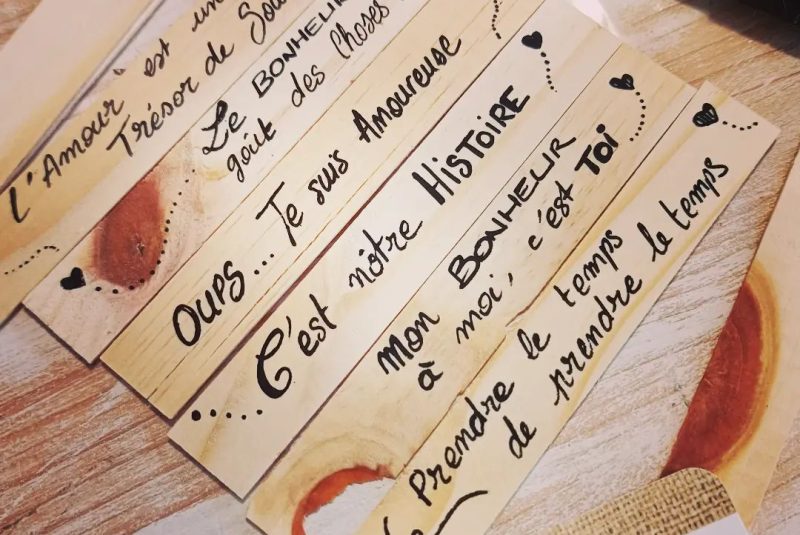 L'Amour est un
Trésor de
Le BONHEUR
goût des Choses
OUPS... Je suis Amoureuse
C'est nôtre HISTOIRE
mon BONHEUR
à moi, c'est TOI
Prendre le temps
de prendre le temps